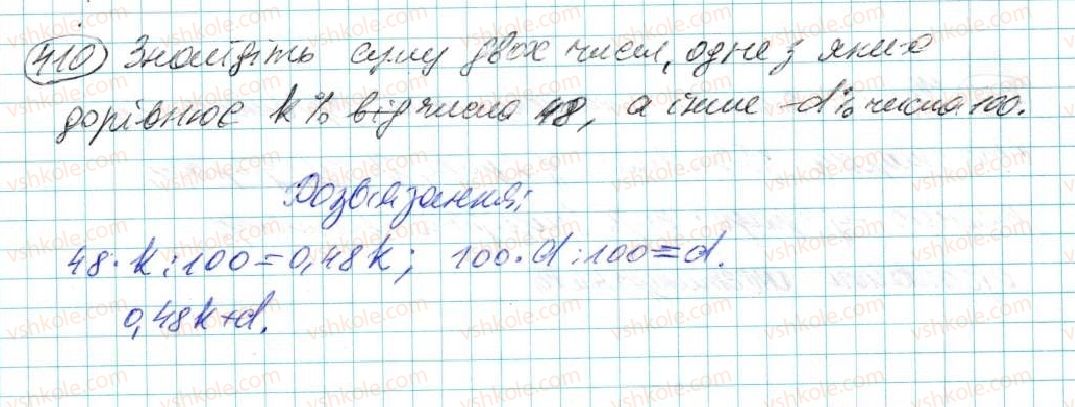 410 Знайдіть суму двох чисел, одне з яких
дорівнює k% від числа 48, а інше - d% числа 100.
Розв'язання:
48·k:100=0,48k; 100·d:100=d.
0,48k+d.